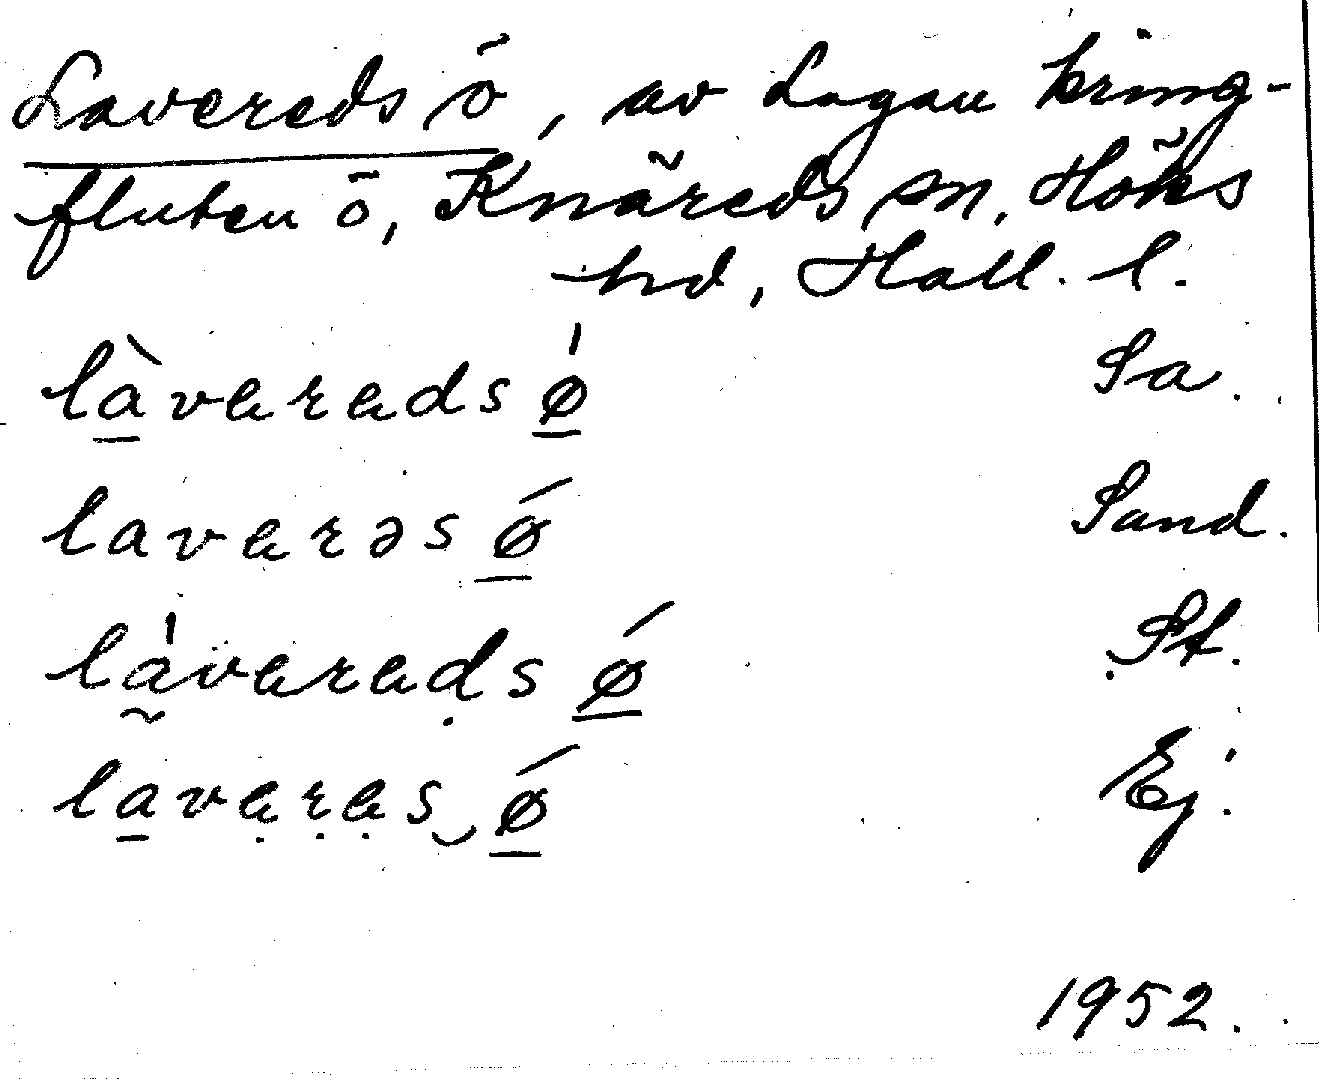 Lavereds ö, av Lagan kring-
fluten ö, Knäreds sn, Höks
hd, Hall. l.
làvarads ǿ Sa.
lavarəs ǿ Sand.
lávarads ǿ St.
lavaras ǿ Ej.
1952.